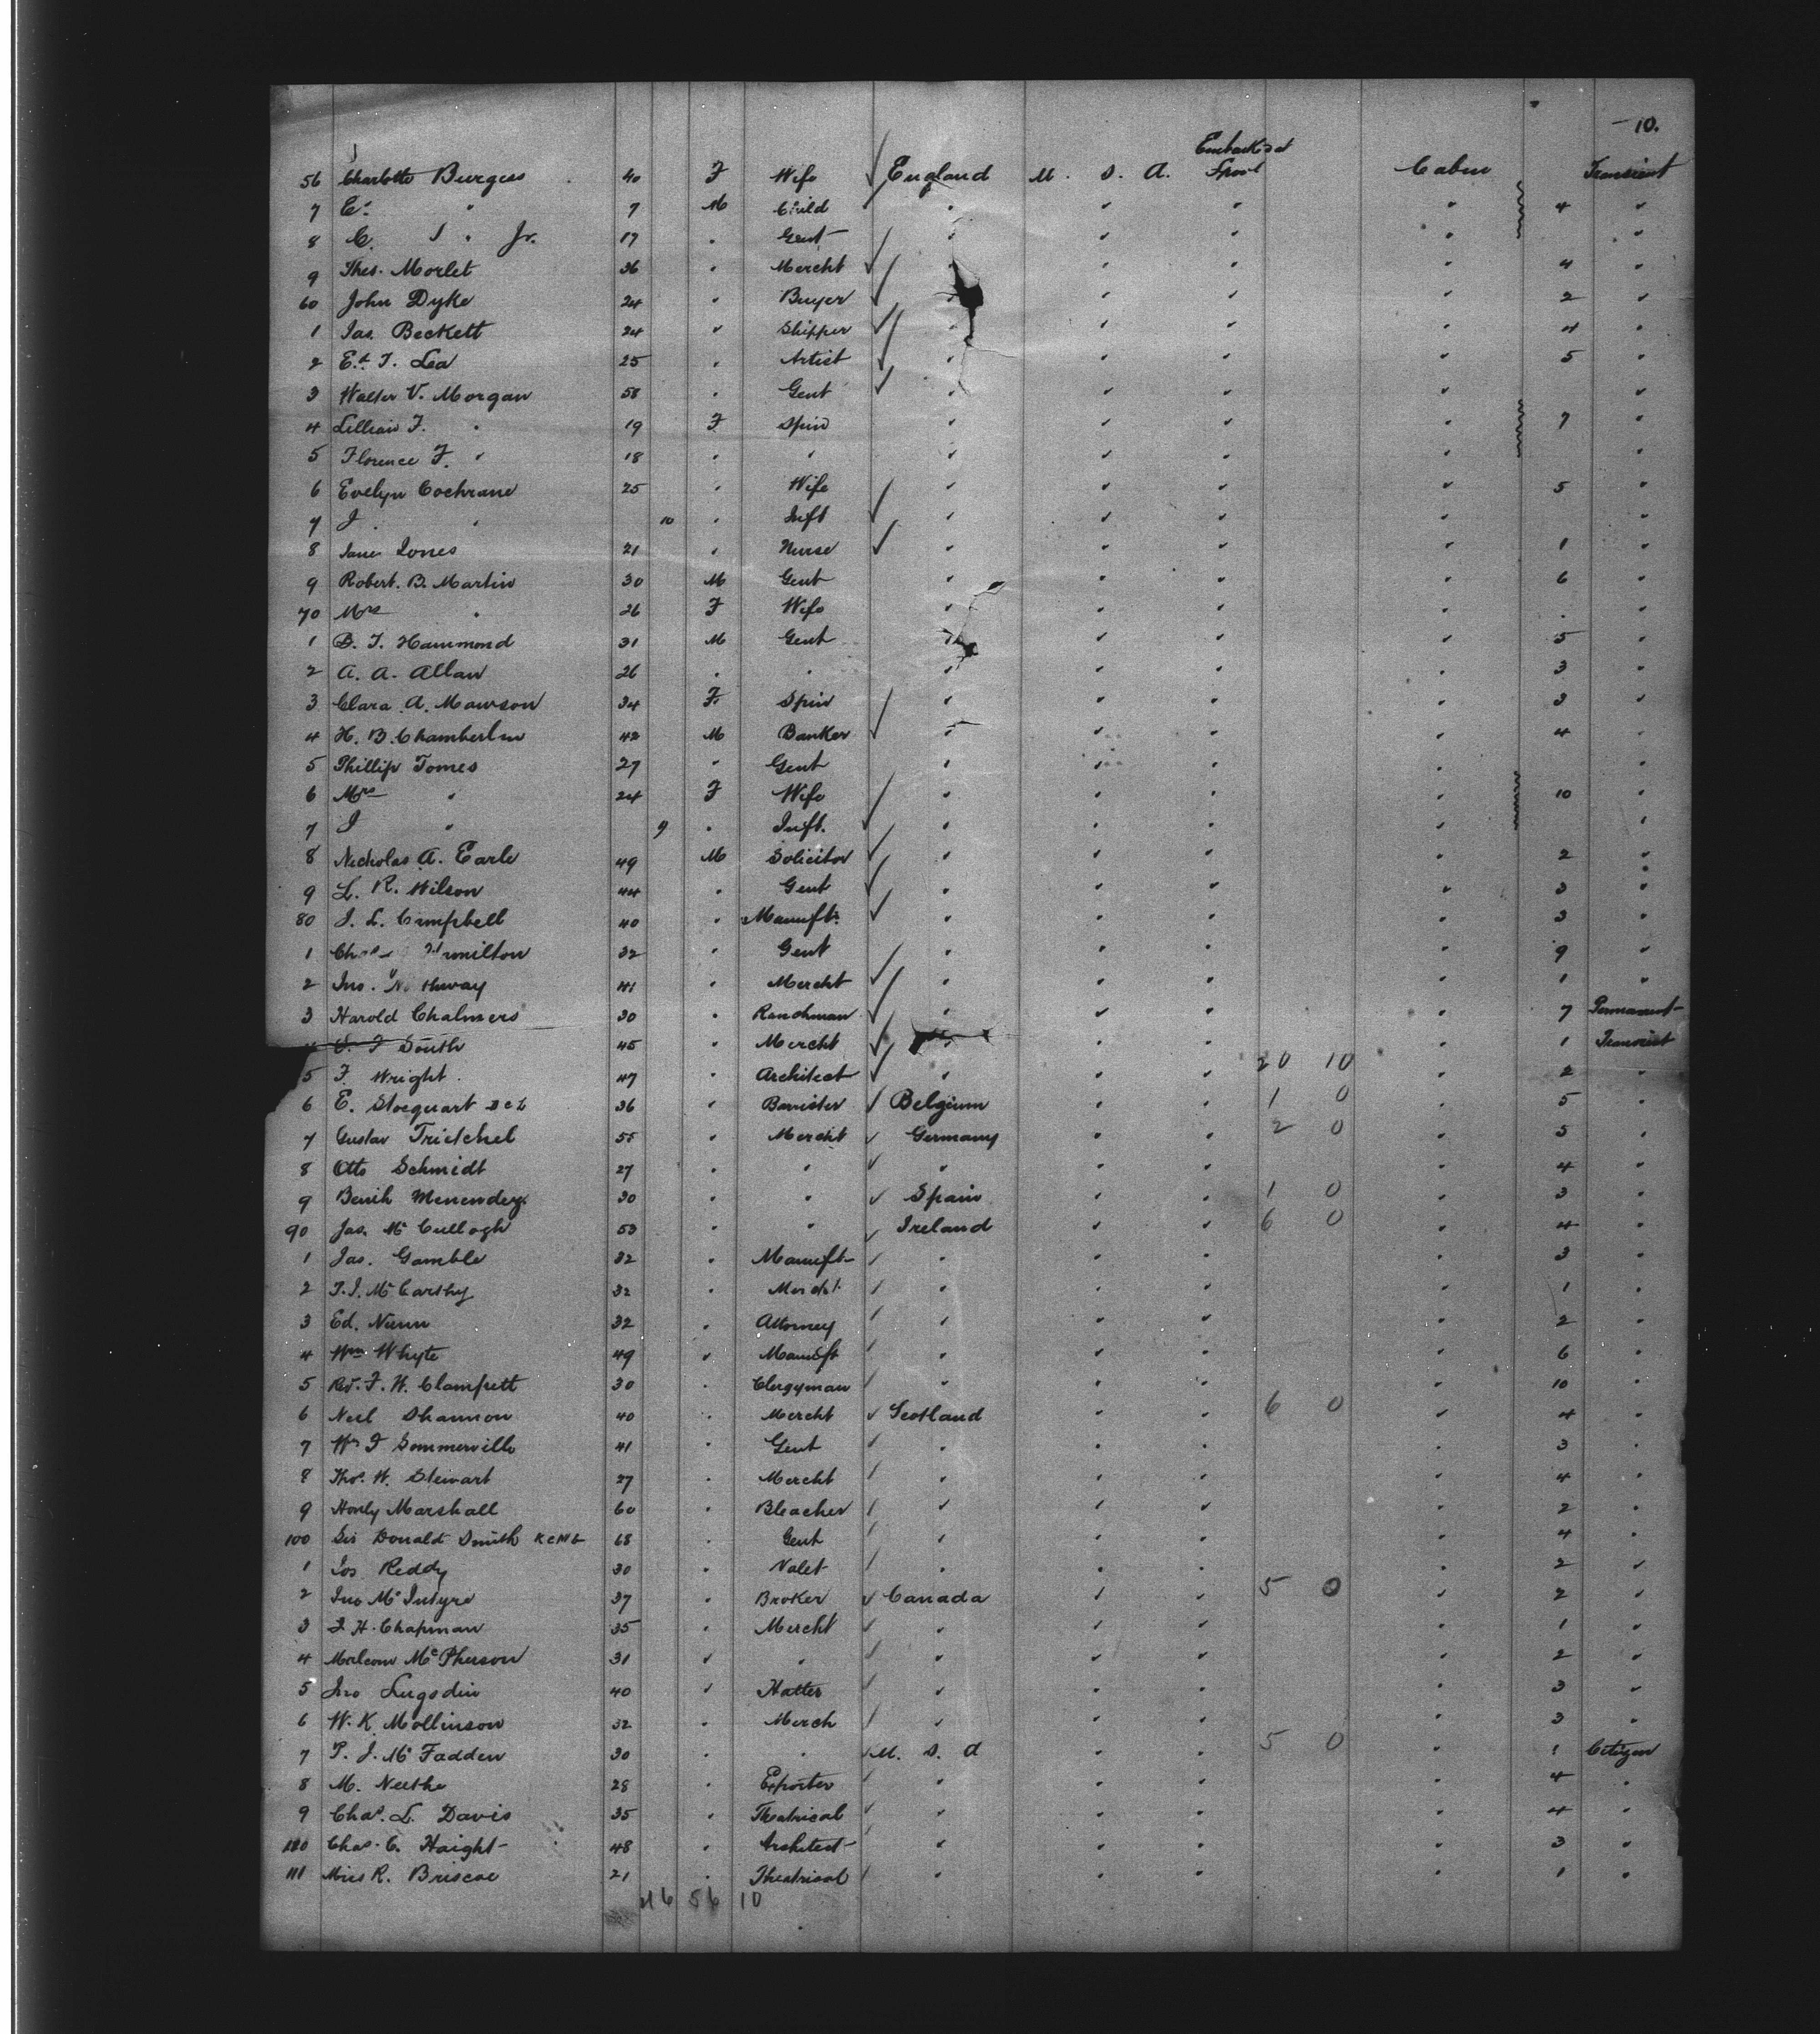 10.
Embarked at
56 Charlotte Burgess 40 F Wife England U. S. A. Lpool Cabin Transient
7 C. " 7 M Child " " " " 4 "
8 C. J " Jr. 17 " Gent " " " " "
9 Thos. Morlet 36 " Mercht " " " " 4 "
60 John Dyke 24 " Buyer " " " " 2 "
1 Jas. Beckett 24 " Shipper " " " " 4 "
2 Ed. T. Lea 25 " Artist " " " " 5 "
3 Walter V. Morgan 58 " Gent " " " " "
4 Lillian F. " 19 F Spin " " " " 7 "
5 Florence F. " 18 " " " " " " "
6 Evelyn Cochrane 25 " Wife " " " " 5 "
7 J. " 10 " Inft " " " " "
8 Jane Jones 21 " Nurse " " " " 1 "
9 Robert. B. Martin 30 M Gent " " " " 6 "
70 Mrs " 26 F Wife " " " " " "
1 B. T. Hammond 31 M Gent " " " " 5 "
2 A. A. Allan 26 " " " " " " 3 "
3 Clara A. Mawson 34 F Spin " " " " 3 "
4 H. B. Chamberlin 42 M Banker " " " " 4 "
5 Phillip Tomes 27 " Gent " " " " "
6 Mrs " 24 F Wife " " " " 10 "
7 J " 9 " Inft. " " " " "
8 Nicholas A. Earle 49 M Solicitor " " " " 2 "
9 L. R. Wilson 44 " Gent " " " " 3 "
80 J. L. Campbell 40 " Manuft. " " " " 3 "
1 Chas milton 32 " Gent " " " " 9 "
2 Jno. thway 41 " Mercht " " " " 1 "
3 Harold Chalmers 30 " Ranchman " " " " 7 Permanent
4 South 45 " Mercht " " " " 1 Transient
5 F. Wright 47 " Architect " " " 20 10 " 2 "
6 E. Stocquart D C L 36 " Barrister Belgium " " 1 0 " 5 "
7 Gustav Trietchel 55 " Mercht Germany " " 2 0 " 5 "
8 Otto Schmidt 27 " " " " " " 4 "
9 Menendez 30 " " Spain " " 1 0 " 3 "
90 Jas. Mc Cullogh 53 " " Ireland " " 6 0 " 4 "
1 Jas. Gamble 32 " Manuft " " " " 3 "
2 T. J. Mc Carthy 32 " Mercht " " " " 1 "
3 Ed. Nunn 32 " Attorney " " " " 2 "
4 Wm Whyte 49 " Manuft " " " " 6 "
5 Rev. F. W. Clampett 30 " Clergyman " " " " 10 "
6 Neil Shannon 40 " Mercht Scotland " " 6 0 " 4 "
7 Wm J Sommerville 41 " Gent " " " " 3 "
8 Thos. W. Stewart 27 " Mercht " " " " 4 "
9 Marshall 60 " Bleacher " " " " 2 "
100 Sir Donald Smith K C M G 68 " Gent " " " " 4 "
1 Jos. Reddy 30 " Valet " " " " 2 "
2 Jno Mc Intyre 37 " Broker Canada " " 5 0 " 2 "
3 J. H. Chapman 35 " Mercht " " " " 1 "
4 Malcom Mc Pherson 31 " " " " " " 2 "
5 Jno Lugsdin 40 " Hatter " " " " 3 "
6 W. K. Mollinson 32 " Merch " " " " 3 "
7 P. J. Mc Fadden 30 " " U. S. A " " 5 0 " 1 Citizen
8 M. Neethe 28 " Exporter " " " " 4 "
9 Chas. L. Davis 35 " Theatrical " " " " 4 "
110 Chas. C. Haight 48 " Architect " " " " 3 "
111 Miss R. Briscoe 21 " Theatrical " " " " 1 "
46 56 10